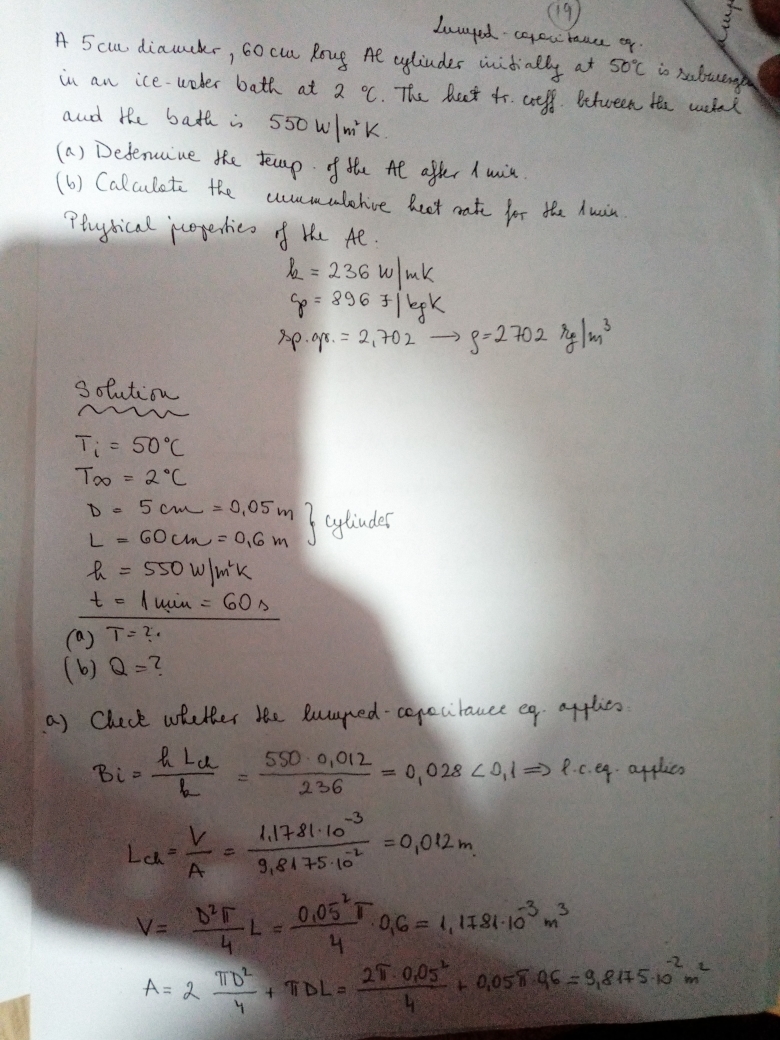 (19)
Lumped-capacitance eq.
A 5cm diameter, 60 cm long Al cylinder initially at 50°C is submerged
in an ice-water bath at 2 °C. The heat tr. coeff. between the metal
and the bath is 550 W/m²K.
(a) Determine the temp. of the Al after 1 min.
(b) Calculate the cummulative heat rate for the 1 min.
Physical properties of the Al.
k = 236 W/mK
cp = 896 J/kgK
sp.gr. = 2,702 → ρ=2702 kg/m³
Solution
Ti = 50°C
T∞ = 2°C
D = 5 cm = 0,05 m } cylinder
L = 60 cm = 0,6 m
h = 550 W/m²K
t = 1 min = 60 s
(a) T=?
(b) Q=?
a) Check whether the lumped-capacitance eq. applies.
Bi = h Lch / k = 550·0,012 / 236 = 0,028 < 0,1 ⇒ l.c.eq. applies
Lch = V / A = 1,1781·10⁻³ / 9,8175·10⁻² = 0,012 m.
V = D²π / 4 L = 0,05²π / 4 ·0,6 = 1,1781·10⁻³ m³
A = 2 πD² / 4 + πDL = 2π·0,05² / 4 + 0,05π·0,6 = 9,8175·10⁻² m²